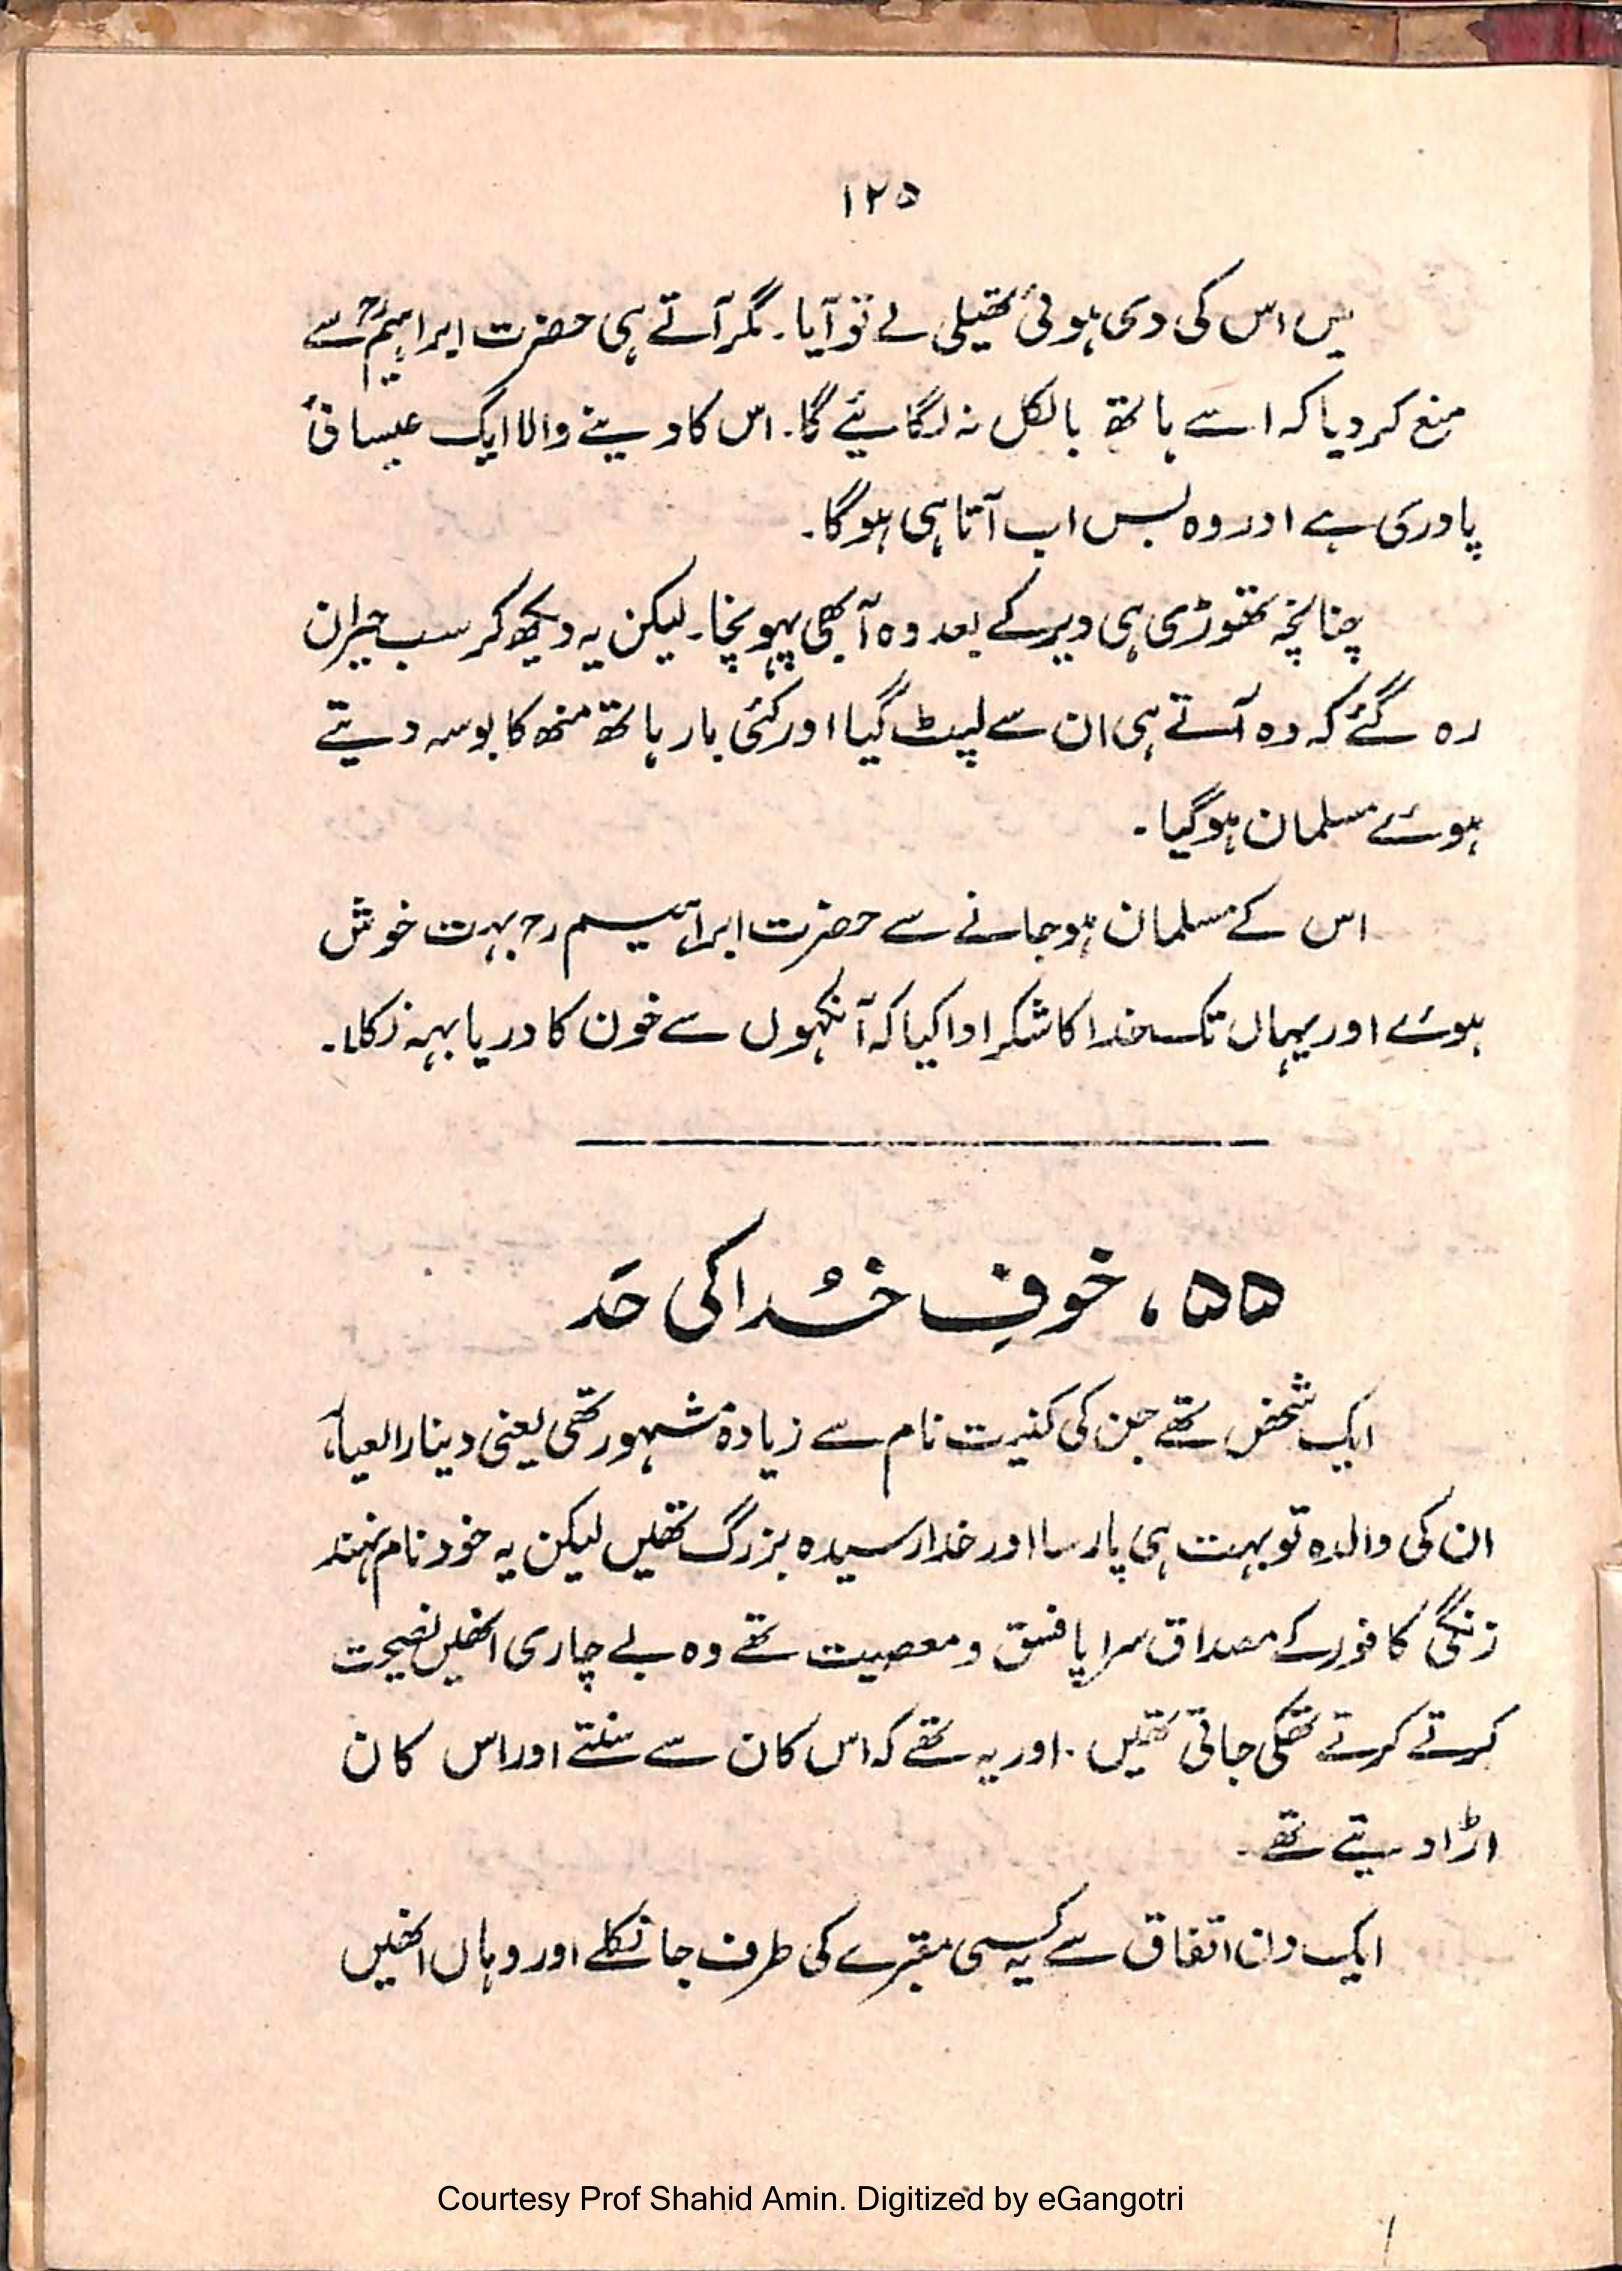 ۱۲۵
میں اس کی دی ہوئی تھیلی لے تو آیا۔ مگر آتے ہی حضرت ابراہیمؒ سے
منع کر دیا کہ اسے ہاتھ بالکل نہ لگائیے گا۔ اس کا دینے والا ایک عیسائی
پادری ہے اور وہ بس اب آتا ہی ہوگا۔
چنانچہ تھوڑی ہی دیر کے بعد وہ آ بھی پہونچا۔ لیکن یہ دیکھ کر سب حیران
رہ گئے کہ وہ آتے ہی ان سے لپٹ گیا اور کئی بار ہاتھ منھ کا بوسہ دیتے
ہوئے مسلمان ہوگیا۔
اس کے مسلمان ہو جانے سے حضرت ابراہیم رح بہت خوش
ہوئے اور یہاں تک خدا کا شکر ادا کیا کہ آنکھوں سے خون کا دریا بہہ نکلا۔
۵۵، خوفِ خُدا کی حَد
ایک شخص تھے جن کی کنیت نام سے زیادہ مشہور تھی یعنی دینار العیار
ان کی والدہ تو بہت ہی پارسا اور خدا رسیدہ بزرگ تھیں لیکن یہ خود نام نہند
زنگی کافور کے مصداق سراپا فسق و معصیت تھے وہ بے چاری انھیں نصیحت
کرتے کرتے تھکی جاتی تھیں۔ اور یہ تھے کہ اس کان سے سنتے اور اس کان
اڑا دیتے تھے۔
ایک دن اتفاق سے یہ کسی مقبرے کی طرف جا نکلے اور وہاں انھیں
Courtesy Prof Shahid Amin. Digitized by eGangotri